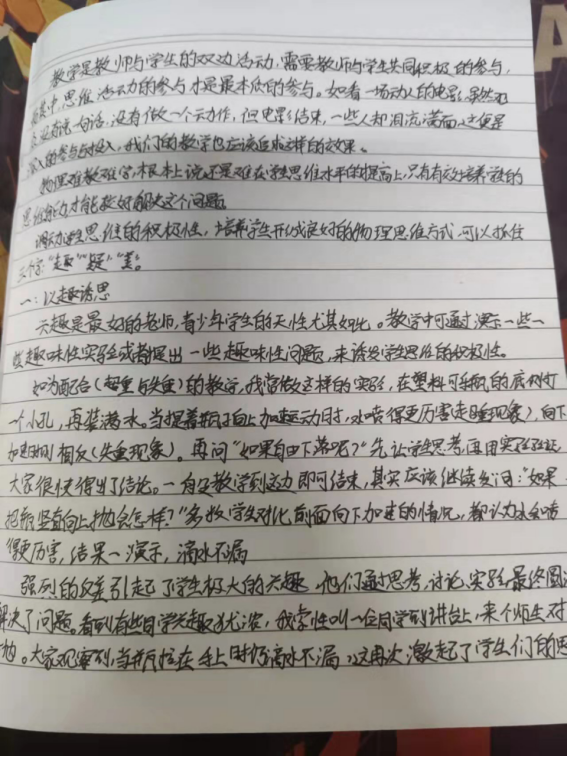 教学是教师与学生的双边活动,需要教师与学生共同积极的参与,
其中思维活动的参与才是最本质的参与。如看一场动人的电影,虽然
没有说一句话,没有做一个云动作,但电影结束,一些人却泪流满面,这便是
深入的参与与投入,我们的教学也应该追求这样的效果。
物理难教难学,根本上说还是难在学生思维水平的提高上,只有有效培养学生的
思维能力才能较好解决这个问题
调动学生思维的积极性,培养学生形成良好的物理思维方式可以抓住
三个字:"趣""疑""变"。
一:以趣诱思
兴趣是最好的老师,青少年学生的天性尤其如此。教学中可通过演示一些
趣味性实验或者提出一些趣味性问题,来诱发学生思维的积极性。
如为配合(超重与失重)的教学,我常做这样的实验,在塑料可乐瓶的底侧钉
一个小孔,再装满水。当提着瓶子向上加速运动时,水喷得更厉害(超重现象),向下
加速时则相反(失重现象)。再问"如果自由下落呢?"先让学生思考,再用实验验证
大家很快得出了结论。一般教学到这边即可结束,其实应该继续发问:"如果
把瓶竖直向上抛会怎样?"多数学生对比前面向下加速的情况,都认为水会喷
得更厉害,结果一演示,滴水不漏
强烈的反差引起了学生极大的兴趣,他们通过思考,讨论,实验,最终圆
解决了问题。看到有些同学兴趣犹浓,我索性叫一位同学到讲台上,来个师生对
抛。大家观察到,当瓶抛在手上时仍滴水不漏,这再次激起了学生们的思